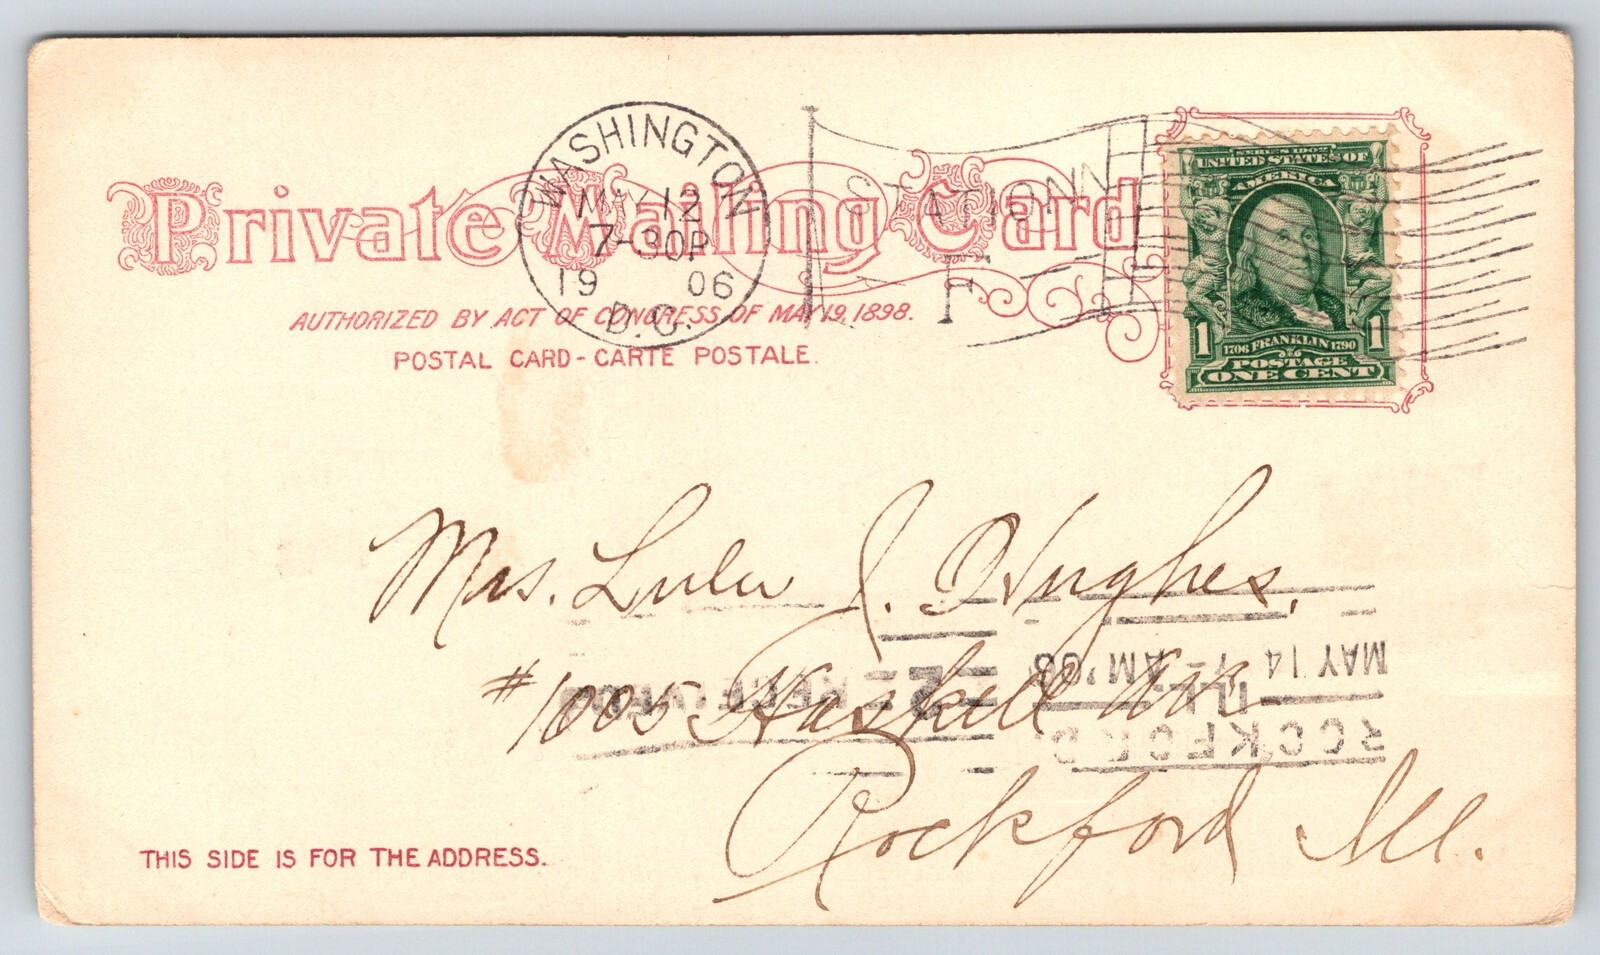 Private Mailing Card
AUTHORIZED BY ACT OF CONGRESS OF MAY 19, 1898.
POSTAL CARD - CARTE POSTALE.
WASHINGTON
MAY 12
7-30P
19 06
D.C.
STATION
F
SERIES 1902
UNITED STATES OF
AMERICA
1 1
1706 FRANKLIN 1790
POSTAGE
ONE CENT
Mrs. Lulu J. Hughes,
#1005 Haskell Ave
Rockford Ill.
ROCKFORD
ILL.
MAY 14 AM '06
2 RECEIVED
THIS SIDE IS FOR THE ADDRESS.